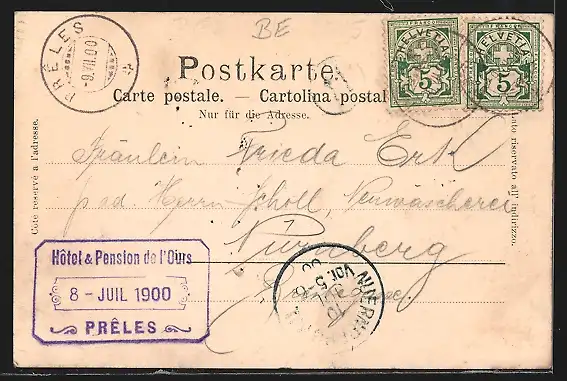 PRÊLES
-9.VII.00
BE
HELVETIA
5
HELVETIA
5
Postkarte.
Carte postale. — Cartolina postal
Nur für die Adresse.
Côté réservé à l'adresse.
Lato riservato all'indirizzo.
Fräulein Frieda
Herrn Scholl, Neuwäscherei
Nürnberg
Hôtel & Pension de l'Ours
8 - JUIL 1900
PRÊLES
NUERNBERG
Vor. 5-6
00